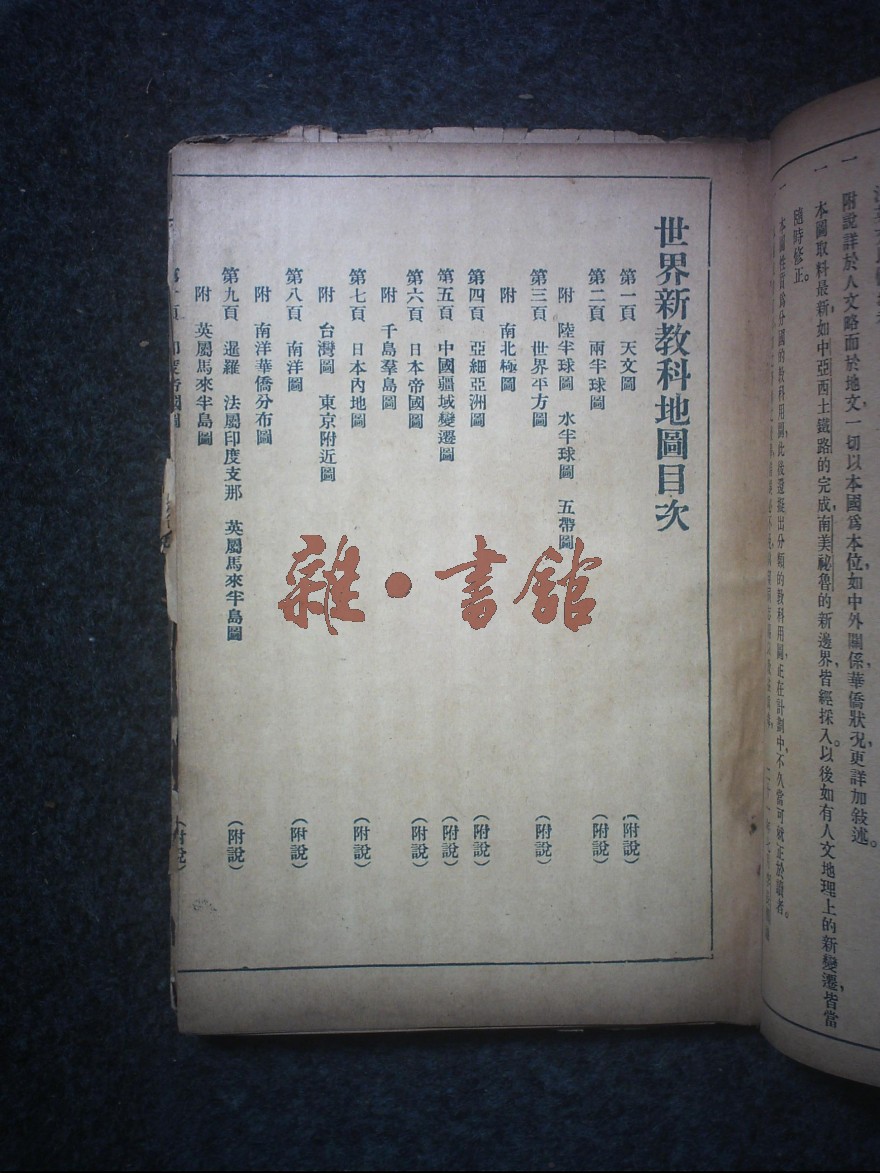 附說詳於人文略面於地文一切以本國爲本位如中外關係華僑狀況更詳加敍述。
一 本圖取料最新如中亞西土鐵路的完成南美祕魯的新邊界皆經採入以後如有人文地理上的新變遷皆當
隨時修正。
一 本圖性質爲分國的教科用圖此後還擬出分類的教科用圖正在計劃中不久當可就正於讀者。
世界新教科地圖目次
第一頁 天文圖 (附說)
第二頁 兩半球圖 (附說)
附 陸半球圖 水半球圖 五帶圖
第三頁 世界平方圖 (附說)
附 南北極圖
第四頁 亞細亞洲圖 (附說)
第五頁 中國疆域變遷圖 (附說)
第六頁 日本帝國圖 (附說)
附 千島羣島圖
第七頁 日本內地圖 (附說)
附 台灣圖 東京附近圖
第八頁 南洋圖 (附說)
附 南洋華僑分布圖
第九頁 暹羅 法屬印度支那 英屬馬來半島圖 (附說)
附 英屬馬來半島圖
(附說)
雜·書館